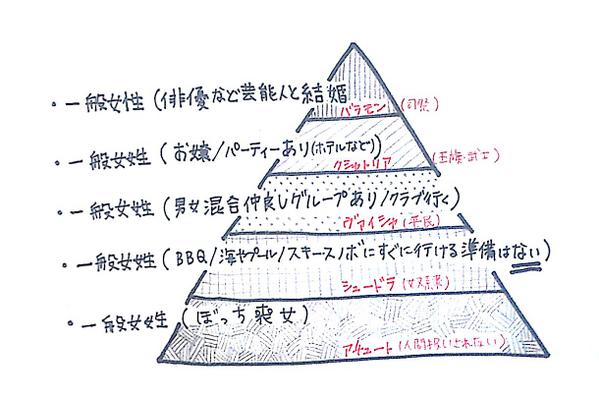 ・一般女性(俳優など芸能人と結婚
バラモン(司祭)
・一般女姓(お嬢/パーティーあり(ホテルなど)
クシャトリア(王族・武士)
・一般女姓(男女混合仲良しグループあり/クラブ行く)
ヴァイシャ(平民)
・一般女姓(BBQ/海やプール/スキースノボにすぐに行ける準備はない)
シュードラ(奴隷)
・一般女姓(ぼっち喪女)
アチュート(人間扱いされない)